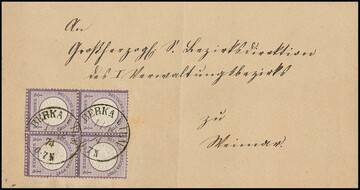 An
Großherzogl. S. Bezirksdirektion
des I. Verwaltungsbezirks
zu
Weimar.
BERKA
BERKA